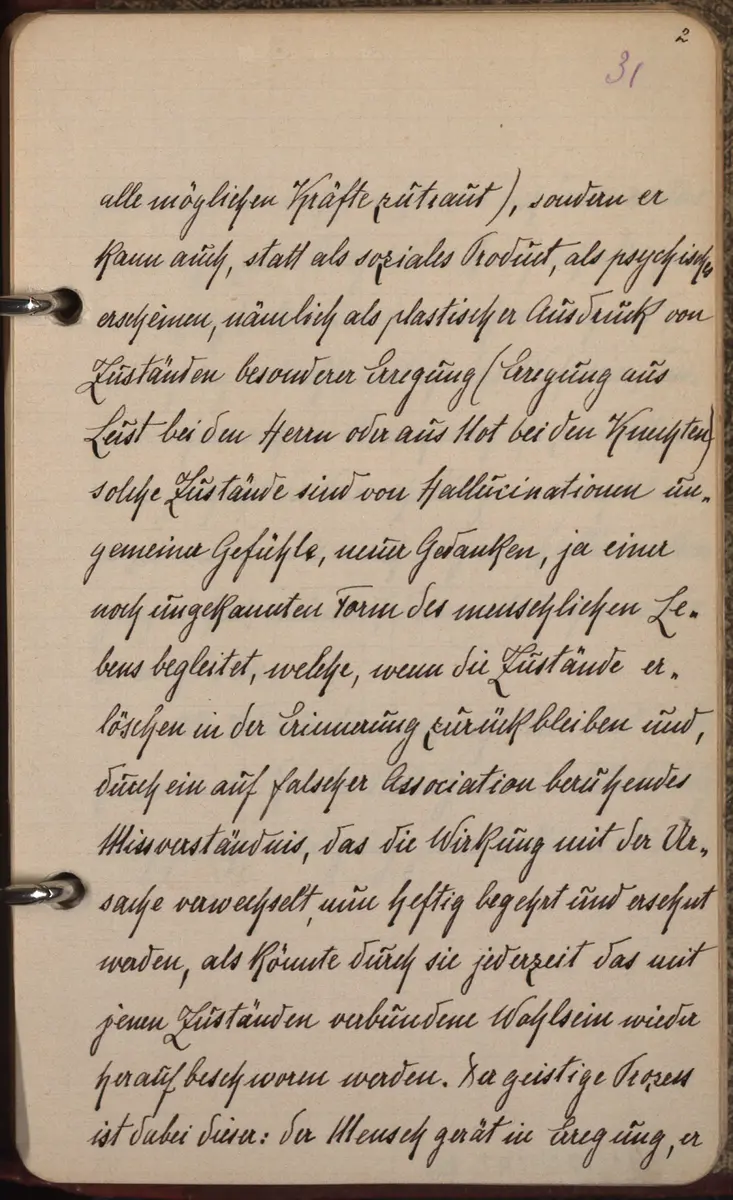 2
31
alle möglichen Kräfte zutraut), sondern er
kann auch, statt als soziales Product, als psychisches
erscheinen, nämlich als plastischer Ausdruck von
Zuständen besonderer Erregung (Erregung aus
Lust bei den Herrn oder aus Not bei den Knechten)
solche Zustände sind von Hallucinationen un-
gemeiner Gefühle, neuer Gedanken, ja einer
noch ungekannten Form des menschlichen Le-
bens begleitet, welche, wenn die Zustände er-
löschen in der Erinnerung zurückbleiben und,
durch ein auf falscher Association beruhendes
Missverständnis, das die Wirkung mit der Ur-
sache verwechselt, nun heftig begehrt und ersehnt
werden, als könnte durch sie jederzeit das mit
jenen Zuständen verbundene Wohlsein wieder
heraufbeschworen werden. Der geistige Prozess
ist dabei dieser: der Mensch gerät in Erregung, er